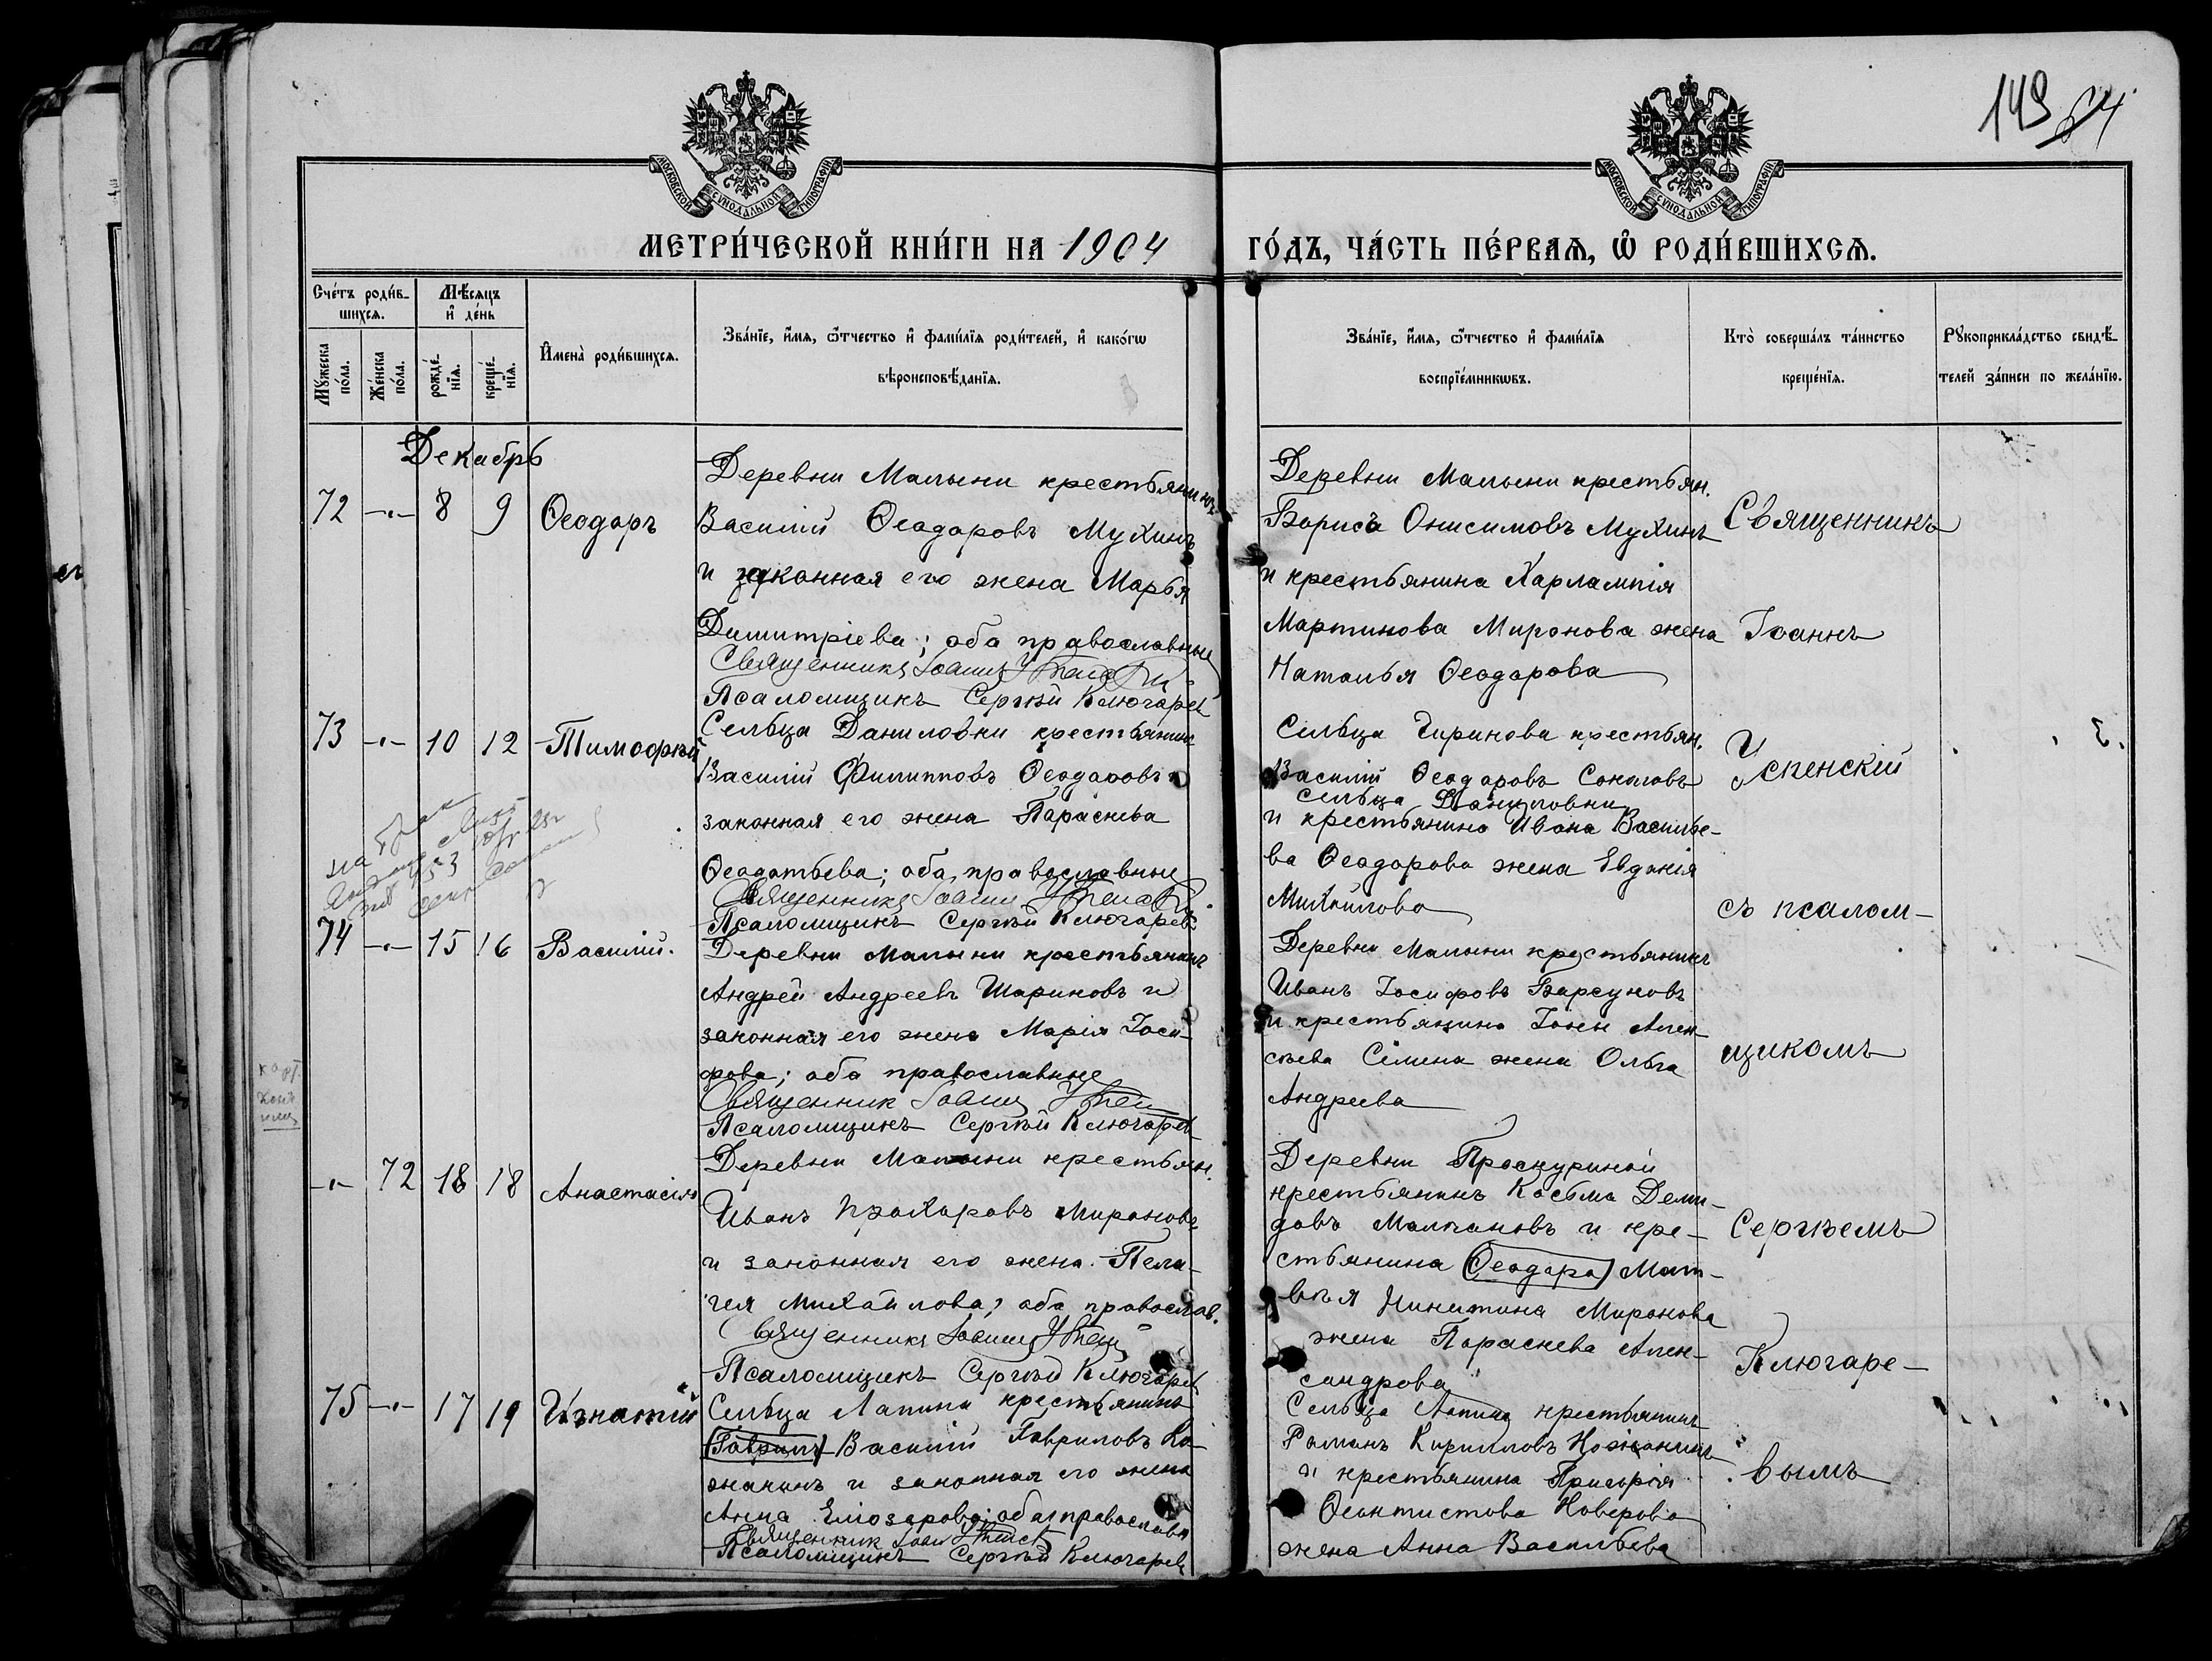 149 64
МОСКОВСКОЙ СѴНОДАЛЬНОЙ ТИПОГРАФІИ
МОСКОВСКОЙ СѴНОДАЛЬНОЙ ТИПОГРАФІИ
МЕТРИ́ЧЕСКОЙ КНИ́ГИ НА 1904 ГО́ДЪ, ЧА́СТЬ ПЕ́РВАѦ, Ѡ РОДИ́ВШИХСѦ.
Сче́тъ роди́в-
шихсѧ.
Мѣ́сѧцъ
и҆ де́нь
Мꙋ́жеска
по́ла.
Же́нска
по́ла.
рожде́-
нїѧ.
креще́-
нїѧ.
И҆мена̀ роди́вшихсѧ.
Зва́нїе, и҆́мѧ, ѻ҆́тчество и҆ фами́лїѧ роди́телей, и҆ како́гѡ
вѣроисповѣ́данїѧ.
Зва́нїе, и҆́мѧ, ѻ҆́тчество и҆ фами́лїѧ
воспрїе́мникѡвъ.
Кто̀ соверша́лъ та́инство
креще́нїѧ.
Рꙋкоприкла́дство свидѣ́-
телей за́писи по жела́нїю.
Декабрь
72 -"- 8 9 Ѳеодоръ
Деревни Малыни крестьянинъ
Василій Ѳеодоровъ Мухинъ
и законная его жена Марья
Димитріева; оба православные
Священникъ Іоаннъ Успенскій
Псаломщикъ Сергѣй Ключарев
Деревни Малыни крестьян.
Бориса Онисимовъ Мухинъ
и крестьянина Харлампія
Мартинова Миронова жена
Наталья Ѳеодорова
Священникъ
Іоаннъ
73 -"- 10 12 Тимоѳей
Сельца Даниловки крестьянинъ
Василій Филипповъ Ѳеодоровъ и
законная его жена Параскева
Ѳеодотьева; оба православные
Священникъ Іоаннъ Успенскій
Псаломщикъ Сергѣй Ключарев
Сельца Чиринова крестьян.
Василій Ѳеодоровъ Соколовъ
сельца Даниловки
и крестьянина Ивана Василье-
ва Ѳеодорова жена Евдокія
Михайлова
Успенскій
съ псалом-
на брак
74 -"- 15 16 Василій.
Деревни Малыни крестьянинъ
Андрей Андреевъ Шариковъ и
законная его жена Марія Іоси-
фова; оба православные
Священник Іоаннъ Успен
Псаломщикъ Сергѣй Ключарев
Деревни Малыни крестьянинъ
Иванъ Іосифовъ Барсуковъ
и крестьянина Іоны Алек-
сѣева Сёмина жена Ольга
Андреева
щикомъ
-"- 72 18 18 Анастасія
Деревни Малыни крестьян.
Иванъ Прохоровъ Мироновъ
и законная его жена Пела-
гея Михайлова; оба православ.
Священникъ Іоаннъ Успен
Псаломщикъ Сергѣй Ключарев
Деревни Проскуриной
крестьянинъ Косьма Деми-
довъ Молкановъ и кре-
стьянина (Ѳеодора) Мат-
вѣя Никитина Миронова
жена Параскева Алек-
сандрова
Сергѣемъ
Ключаре-
75 -"- 17 19 Игнатій
Сельца Лапина крестьянинъ
(Гаврилъ) Василій Гавриловъ Ко-
жакинъ и законная его жена
Анна Елиозарова; оба православн
Священник Іоан Успенск
Псаломщикъ Сергѣй Ключарев
Сельца Лапина крестьянинъ
Романъ Кирилловъ Ножанинъ
и крестьянина Григорія
Ѳеоктистова Коверова
жена Анна Васильева
вымъ